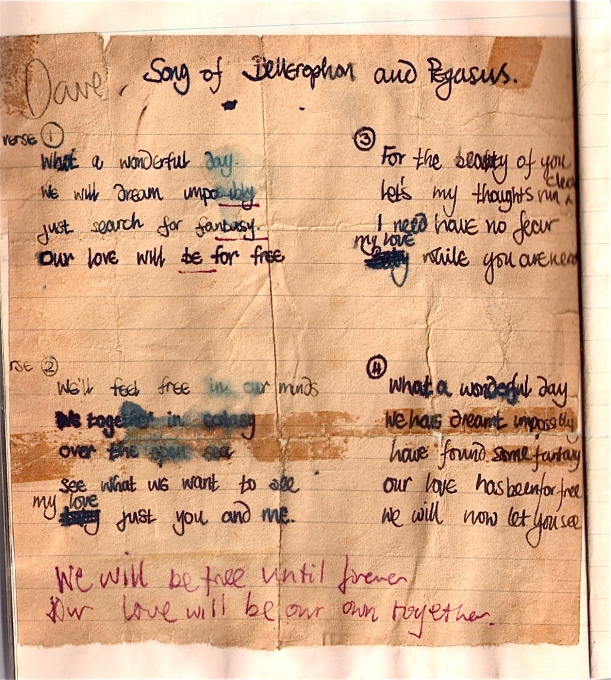 Dave.
Song of Bellerophon and Pegasus.
verse ①
What a wonderful day.
We will dream impossibly
just search for fantasy.
Our love will be for free
rse ②
We'll feel free in our minds
We together in ecstasy
over the open sea
see what we want to see
my love
just you and me.
③
For the beauty of you
let's my thoughts run clear
I need have no fear
my love
while you are near
④
What a wonderful day
We have dreamt impossibly
have found some fantasy
our love has been for free
we will now let you see
We will be free until forever
Our love will be our own together.